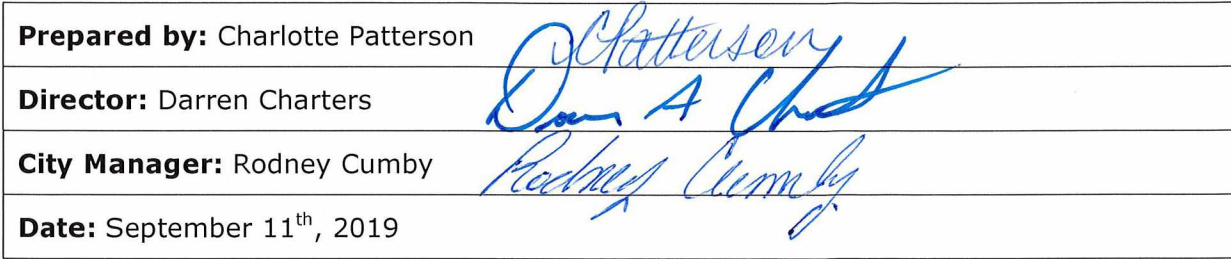 Prepared by: Charlotte Patterson CPatterson
Director: Darren Charters
City Manager: Rodney Cumby Rodney Cumby
Date: September 11th, 2019